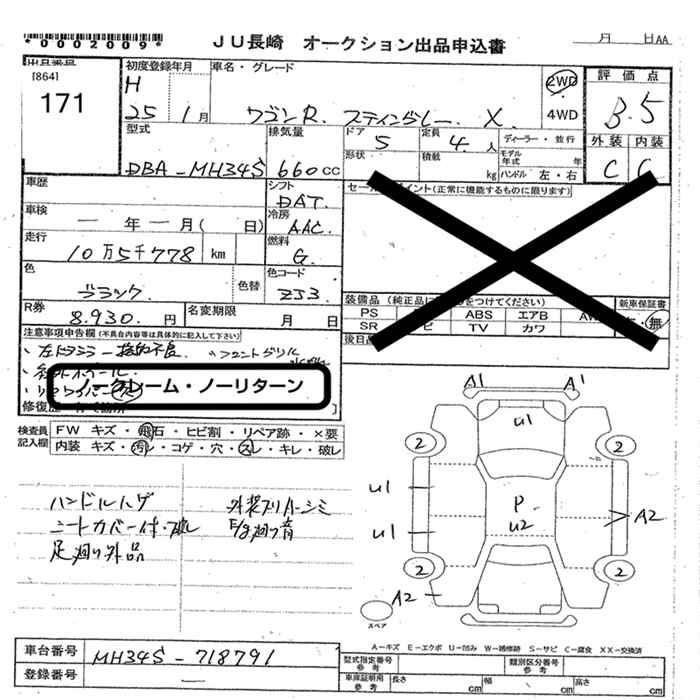 *0002009*
JU長崎 オークション出品申込書
月 日 AA
出品番号
[864]
171
初度登録年月
H
25 1月
車名・グレード
ワゴンR. スティングレー. X.
2WD
・
4WD
評価点
3.5
外装 内装
C C
型式
DBA-MH34S
排気量
660 CC
ドア
5
定員
4 人
ディーラー・並行
形状
積載
kg
モデル年式 年
ハンドル 左・右
車歴
シフト
DAT.
車検
— 年 — 月( 日)
冷房
AAC.
走行
10万5千778 km
燃料
G.
色
ブラック.
色替
色コード
ZJ3
R券
8.930. 円
名変期限
月 日
セールスポイント(正常に機能するものに限ります)
装備品
PS ABS エアB AW
SR TV カワ
新車保証書
・無
後日品
注意事項申告欄(不具合内容等は具体的に記入して下さい)
ノークレーム・ノーリターン
修復歴
検査員記入欄
FW キズ・飛石・ヒビ割・リペア跡・×要
内装 キズ・汚レ・コゲ・穴・スレ・キレ・破レ
ハンドルハゲ
シートカバー付・破レ
足廻り外品
外装
廻り音
A1 A1
U1
2 2
U1
P.
U2
A2
U1
2 2
A2
スペア
A-キズ E-エクボ U-凹み W-補修跡 S-サビ C-腐食 XX-交換済
車台番号
MH34S-718791
登録番号
—
型式指定番号
参考
類別区分番号
参考
車庫証明用
参考
長さ cm
幅 cm
高さ cm